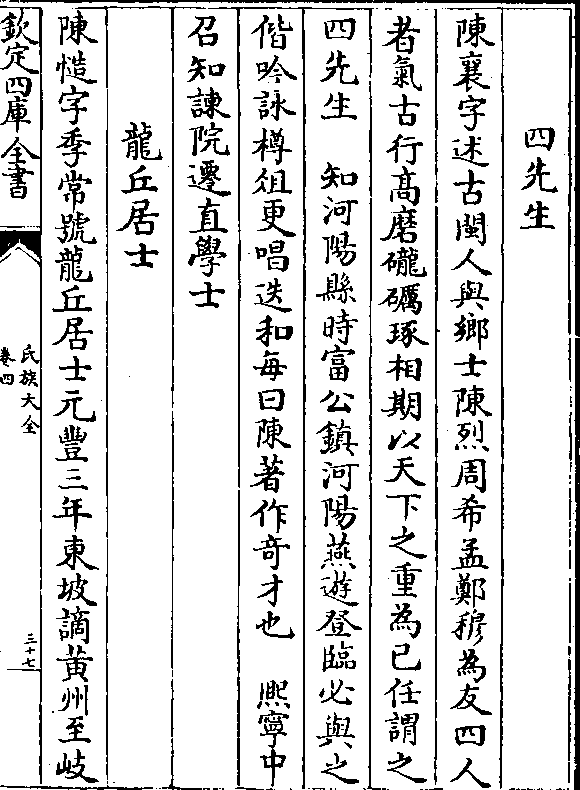 四先生
陳襄字述古閩人與鄉士陳烈周希孟鄭穆為友四人
者氣古行高磨礲礪琢相期以天下之重為已任謂之
四先生　知河陽縣時富公鎮河陽燕遊登臨必與之
偕吟詠樽俎更唱迭和每曰陳著作竒才也　熈寧中
召知諫院遷直學士
龍丘居士
陳慥字季常號龍丘居士元豐三年東坡謫黃州至岐
欽定四庫全書
氏族大全
卷四
三十七